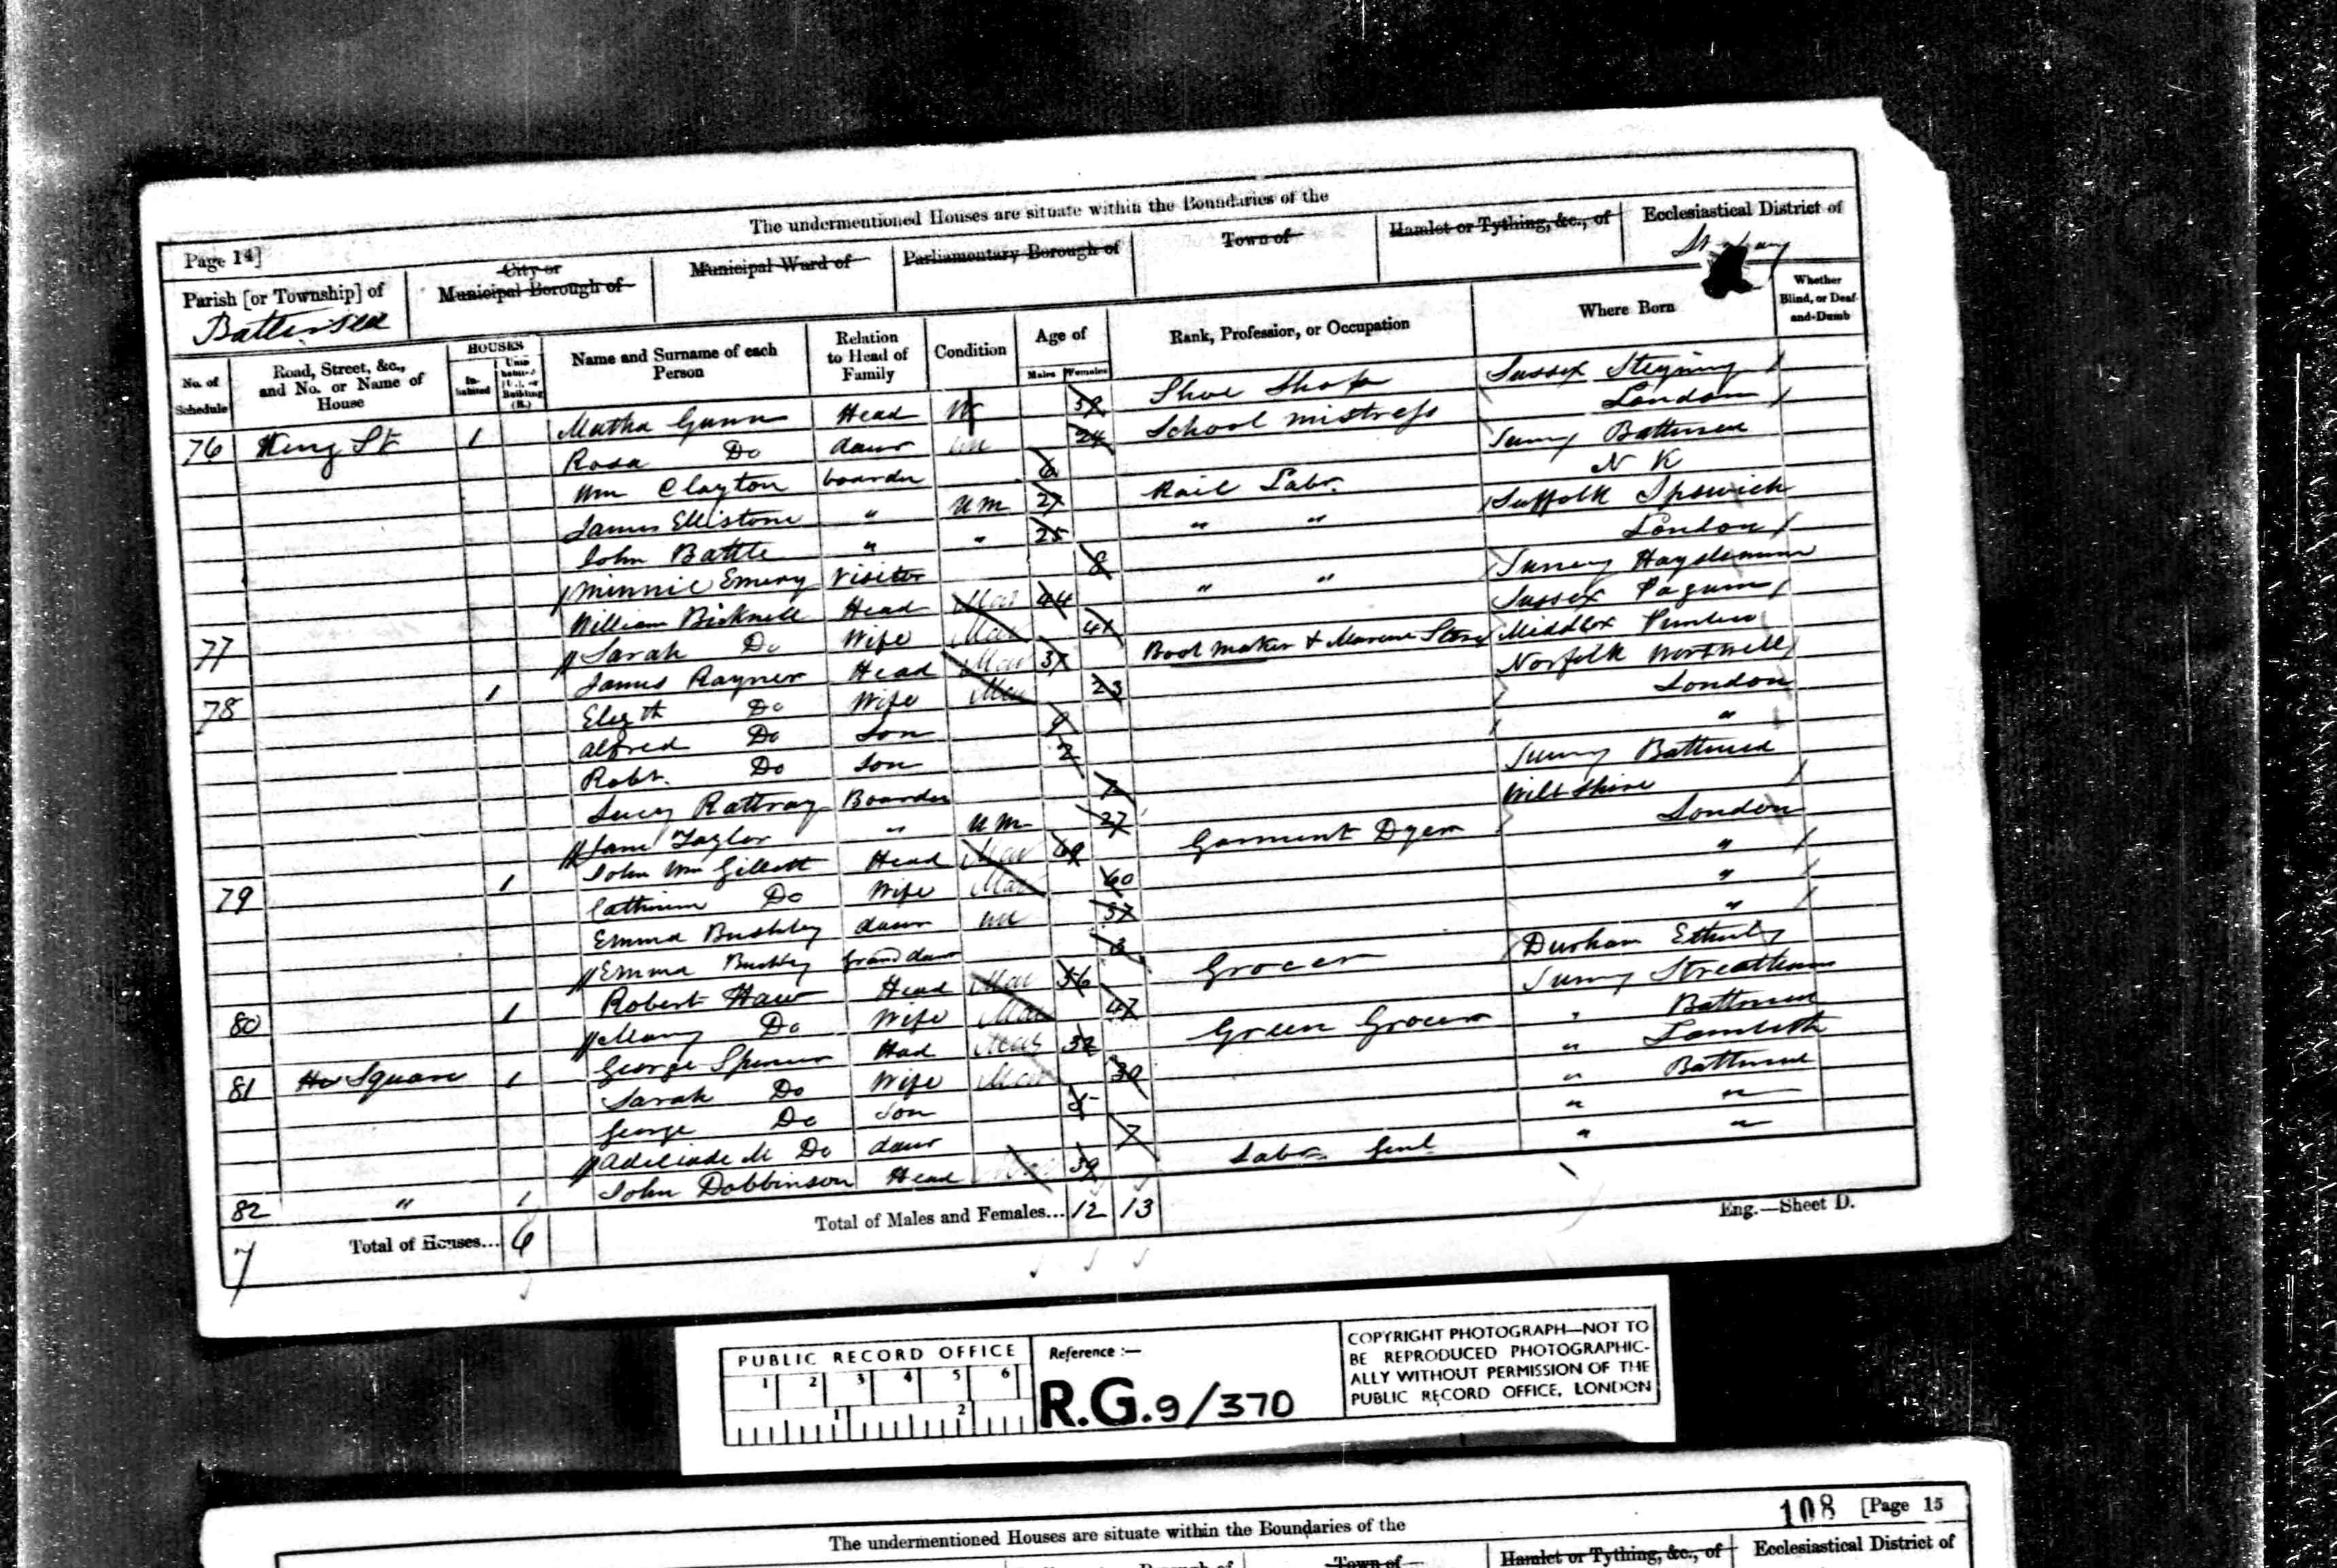 The undermentioned Houses are situate within the Boundaries of the
Page 14]
Parish [or Township] of
Battersea
City or
Municipal Borough of
Municipal Ward of
Parliamentary Borough of
Town of
Hamlet or Tything, &c., of
Ecclesiastical District of
No. of Schedule
Road, Street, &c., and No. or Name of House
HOUSES
Inhabited
Uninhabited (U.), or Building (B.)
Name and Surname of each Person
Relation to Head of Family
Condition
Age of
Males
Females
Rank, Profession, or Occupation
Where Born
Whether Blind, or Deaf-and-Dumb
76 King St 1 Matha Gunn Head W 59 Shoe Shop Sussex Steyning
Rosa Do daur un 24 School mistress London
Wm Clayton boarder 6 Surrey Battersea
James Ellistone " U M 27 Rail Labr. N K
John Battle " " 25 " " Suffolk Ipswich
Minnie Emery Visitor 8 London
77 William Bicknell Head Mar 44 " " Surrey Hayslemere
Sarah Do Wife Mar 41 Sussex Pagum
78 1 James Rayner Head Mar 37 Boot maker & Marine Store Middlex Pimlico
Elizth Do Wife Mar 23 Norfolk Wortwell
Alfred Do Son 9 London
Robt. Do Son 2 "
Lucy Rattray Boarder 7 Surrey Battersea
Jane Taylor " U M 27 Wiltshire
79 1 John Wm Gillett Head Mar 69 Garment Dyer London
Catherine Do Wife Mar 60 "
Emma Bushby daur un 37 "
Emma Bushby Grand daur 3 "
80 1 Robert Haw Head Mar 56 Grocer Durham
Mary Do Wife Mar 47 Surrey Streatham
81 Square 1 George Spencer Head Mar 32 Green Grocer " Battersea
Sarah Do Wife Mar 30 " Lambeth
George Do Son 5 " Battersea
Adelaide M Do daur 7 " "
82 " 1 John Dobbinson Head Mar 39 Labr. Genl " "
7 Total of Houses... 6 Total of Males and Females... 12 13
Eng.—Sheet D.
PUBLIC RECORD OFFICE
1 2 3 4 5 6
1 2
Reference :—
R.G. 9/370
COPYRIGHT PHOTOGRAPH—NOT TO
BE REPRODUCED PHOTOGRAPHIC-
ALLY WITHOUT PERMISSION OF THE
PUBLIC RECORD OFFICE, LONDON
108 [Page 15
The undermentioned Houses are situate within the Boundaries of the
Town of
Hamlet or Tything, &c., of
Ecclesiastical District of